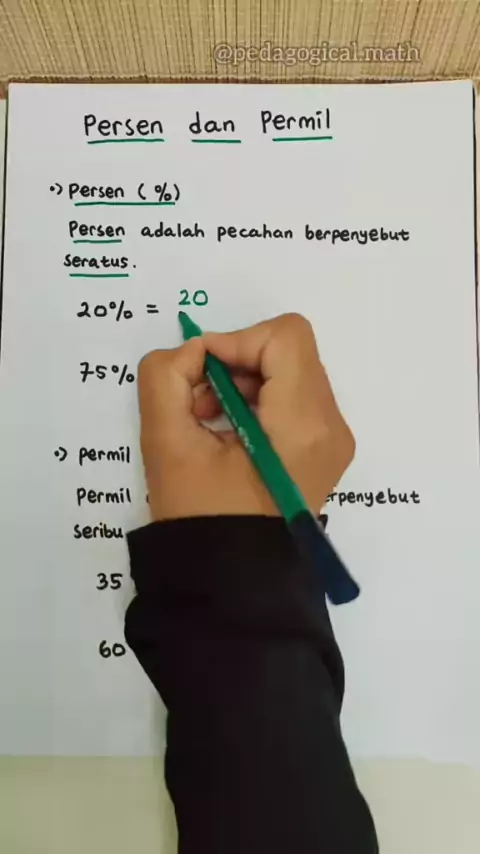 @pedagogical.math
Persen dan Permil
•> Persen (%)
Persen adalah pecahan berpenyebut
seratus.
20% = 20
75%
•> Permil
Permil
seribu
35
60